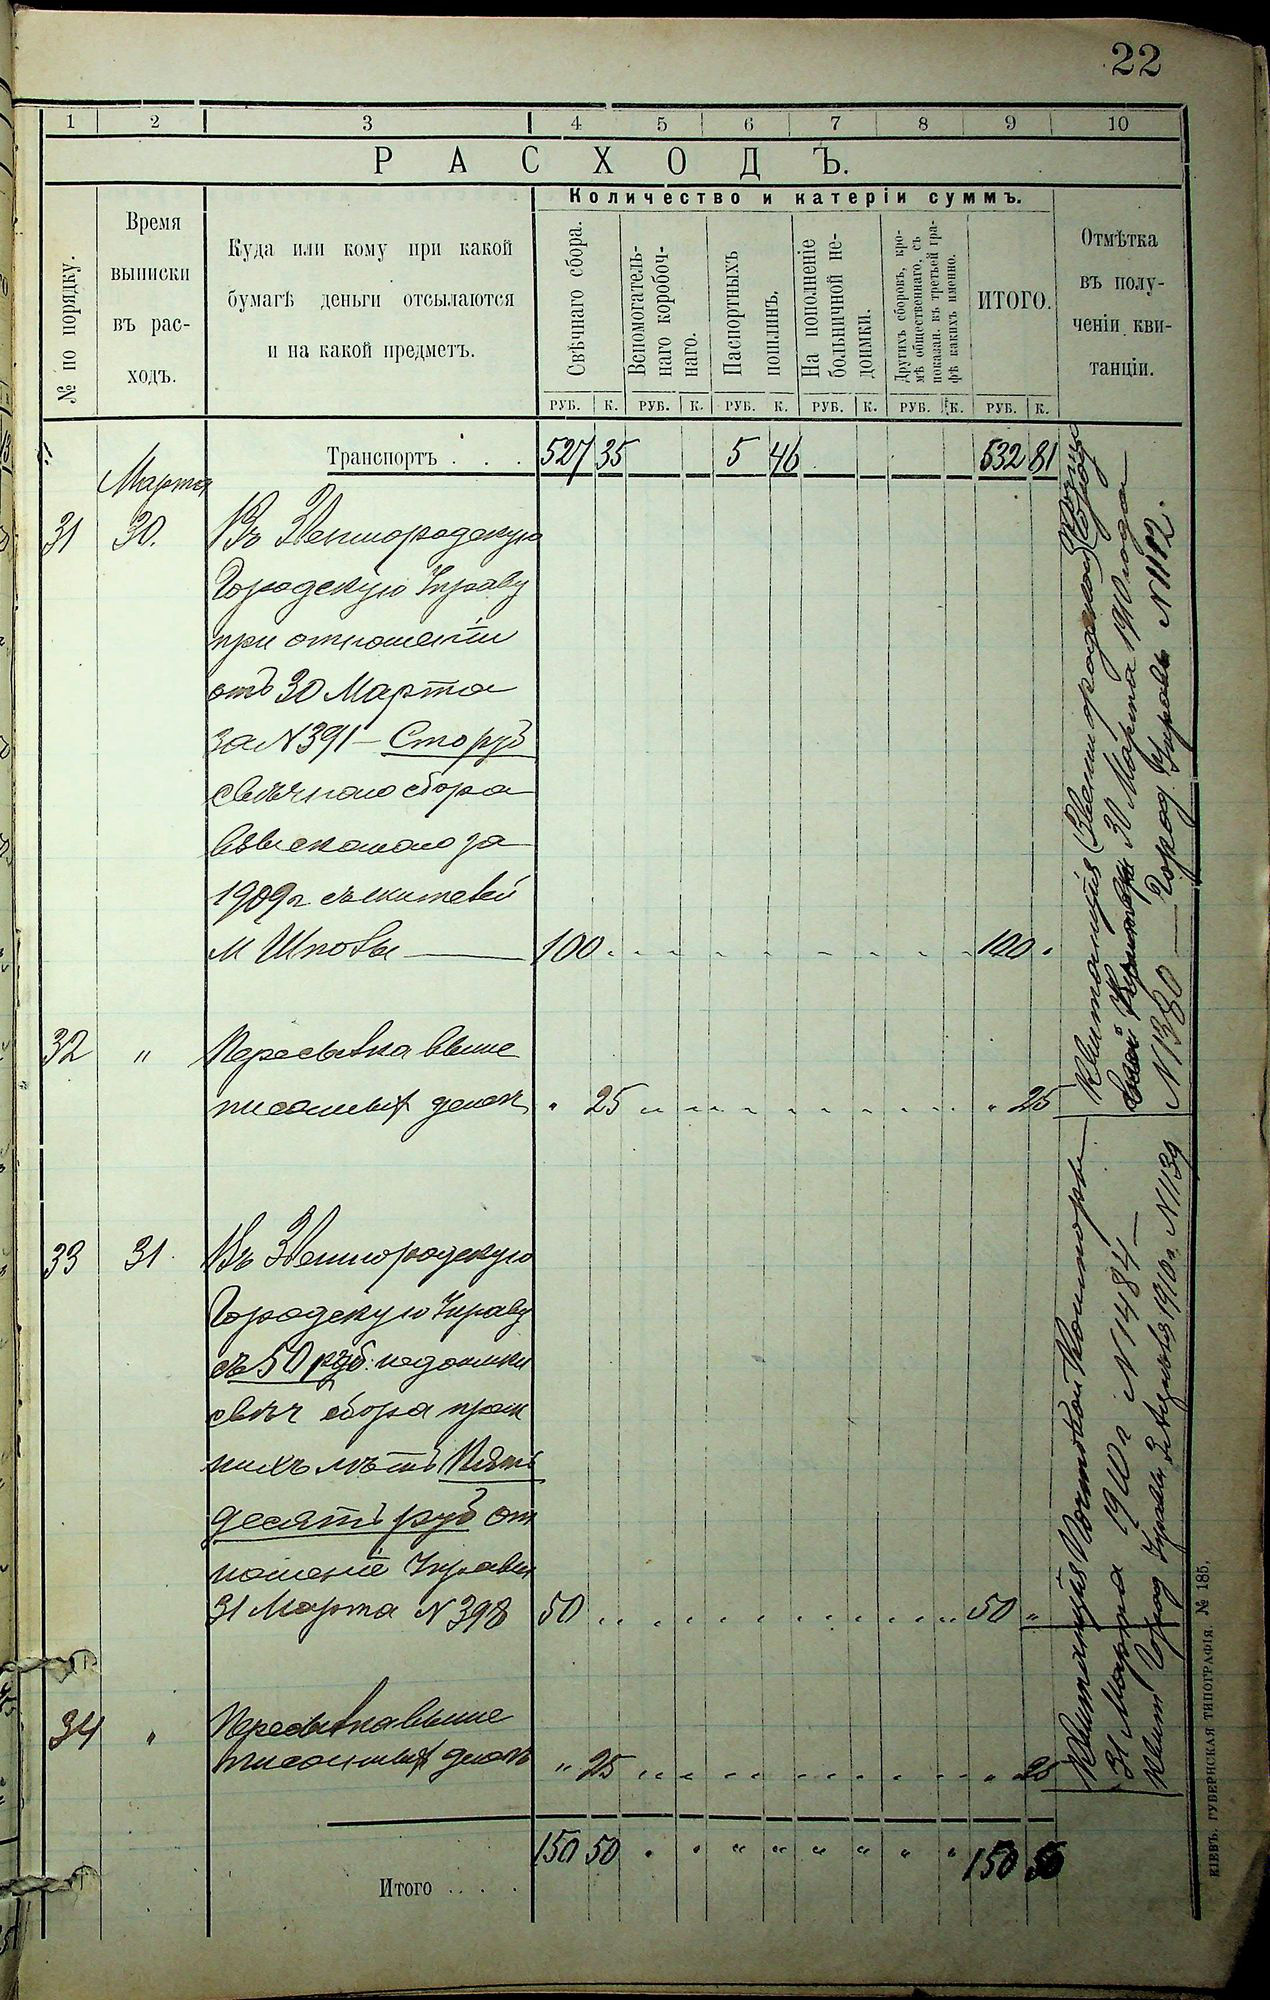 22
1 2 3 4 5 6 7 8 9 10
РАСХОДЪ.
Количество и катеріи суммъ.
№ по порядку.
Время
выписки
въ рас-
ходъ.
Куда или кому при какой
бумагѣ деньги отсылаются
и на какой предметъ.
Свѣчнаго сбора.
Вспомогатель-
наго коробоч-
наго.
Паспортныхъ
пошлинъ.
На пополненіе
больничной не-
доимки.
Другихъ сборовъ, кро-
мѣ общественнаго, съ
показан. въ третьей гра-
фѣ какихъ именно.
ИТОГО.
Отмѣтка
въ полу-
ченіи кви-
танціи.
РУБ. К. РУБ. К. РУБ. К. РУБ. К. РУБ. К. РУБ. К.
Транспортъ . . . 527 35 5 46 532 81
Марта
31 30. Въ Звенигородскую
Городскую Управу
при отношеніи
отъ 30 Марта
за N 391 — Сто руб
свѣчного сбора
взысканого за
1909 г. съ жителей
м Шполы — 100 . 100 .
32 " Пересылка выше
писанныхъ денег " 25 " 25
33 31 Въ Звенигородскую
Городскую Управу
съ 50 руб. недоимки
свѣч сбора преж
нихъ лѣтъ Пять
десятъ руб от
ношеніе Управы
31 Марта N 398 50 . . 50 "
34 " Пересылка выше
писанныхъ денегъ " 25 " 25
Итого . . . . 150 50 150 50
Квитанція Звенигородской
30 Марта 1910 года
N 1380 — Город Управы N 1112.
Квитанція Почтовой Конторы
31 Марта 1910 г N 1484 —
Квит Город Управы 3 Апрѣля 1910 г. N 1139
КІЕВЪ. ГУБЕРНСКАЯ ТИПОГРАФІЯ. № 185.